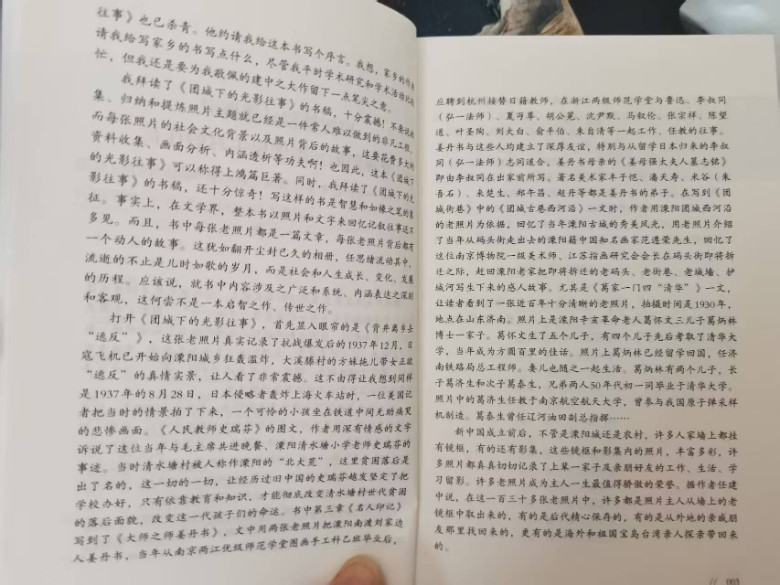 往事》也已杀青。他约请我给这本书写个序言。我想，家乡的作者
请我给写家乡的书写点什么，尽管我平时学术研究和学术活动比较
忙，但我还是要为我敬佩的建中之大作留下一点笔尖之意。
我拜读了《团城下的光影往事》的书稿，十分震撼！不要说收
集、归纳和提炼照片主题就已经是一件常人难以做到的非凡工程，
而每张照片的社会文化背景以及照片背后的故事，这要花费多大的
资料收集、画面分析、内涵透析等功夫啊！也因此，这本《团城下
的光影往事》可以称得上鸿篇巨著。同时，我拜读了《团城下的光
影往事》的书稿，还十分惊奇！写这样的书是智慧和如椽之笔的象
征。事实上，在文学界，整本书以照片和文字来回忆记叙往事还不
多见。而且，书中每张老照片都是一篇文章，每张老照片背后都有
一个动人的故事。这犹如翻开尘封已久的相册，任思绪流动其中，
流逝的不止是儿时如歌的岁月，而是社会和人生成长、变化、发展
的历程。应该说，就书中内容涉及之广泛和系统、内涵表达之深刻
和客观，这何尝不是一本启智之作、传世之作。
打开《团城下的光影往事》，首先显入眼帘的是《背井离乡去
“逃反”》，这张老照片真实记录了抗战爆发后的1937年12月，日
寇飞机已开始向溧阳城乡狂轰滥炸，大溪滕村的方妹拖儿带女正欲
“逃反”的真情实景，让人看了非常震撼。这不由得让我想到同样
是1937年的8月28日，日本侵略者轰炸上海火车站时，一位美国记
者把当时的情景拍了下来，一个可怜的小孩坐在铁道中间无助痛哭
的悲惨画面。《人民教师史瑞芬》的图文，作者用深有情感的文字
诉说了这位当年与毛主席共进晚餐、溧阳清水塘小学老师史瑞芬的
事迹。当时清水塘村被人称作溧阳的“北大荒”，这里贫困落后是
出了名的，这一切的一切，让经历过旧中国的史瑞芬越发坚定了把
学校办好，只有依靠教育和知识，才能彻底改变清水塘村世代贫困
的落后面貌，改变这一代孩子们的命运。书中第三章《名人印记》
写到了《大师之师姜丹书》，文中用两张老照片把溧阳南渡刘家边
人姜丹书，当年从南京两江优级师范学堂图画手工科乙班毕业后，
应聘到杭州接替日籍教师，在浙江两级师范学堂与鲁迅、李叔同
（弘一法师）、夏丏尊、胡公冕、沈尹默、马叙伦、张宗祥、陈望
道、叶圣陶、刘大白、俞平伯、朱自清等一起工作、任教的往事。
姜丹书与这些人均建立了深厚友谊，特别与从留学日本归来的李叔
同（弘一法师）志同道合。姜丹书母亲的《姜母强太夫人墓志铭》
即由李叔同在出家前所写。著名美术家丰子恺、潘天寿、米谷（朱
吾石）、来楚生、郑午昌、赵丹等都是姜丹书的弟子。在写到《团
城街巷》中的《团城古巷西河沿》一文时，作者用溧阳团城西河沿
的老照片为依据，回忆了当年溧阳古城的秀美风光，用老照片介绍
了当年从码头街走出去的溧阳籍中国知名画家范遵荣先生，回忆了
这位南京博物院一级美术师、江苏指画研究会会长在码头街即将拆
迁之际，赶回溧阳老家把即将拆迁的老码头、老街巷、老城墙、护
城河写生下来的感人故事。尤其是《葛家一门四“清华”》一文，
让读者看到了一张近百年十分清晰的老照片，拍摄时间是1930年，
地点在山东济南。照片上是溧阳辛亥革命老人葛怀文三儿子葛炳林
博士一家子。葛怀文生了五个儿子，有四个儿子先后考取了清华大
学，当年成为方圆百里的佳话。照片上葛炳林已经留学回国，任济
南铁路局总工程师。妻儿也随之一起生活。葛炳林有两个儿子，长
子葛济生和次子葛泰生，兄弟两人50年代初一同毕业于清华大学。
照片中的葛济生任教于南京航空航天大学，曾参与我国原子弹采样
机制造。葛泰生曾任辽河油田副总指挥……
新中国成立前后，不管是溧阳城还是农村，许多人家墙上都挂
有镜框，有的还有影集，这些镜框和影集内的照片，丰富多彩，许
多照片都真真切切记录了上辈一家子及亲朋好友的工作、生活、学
习留影。许多老照片成为主人一生最值得骄傲的荣誉。据作者任建
中说，在这一百三十多张老照片中，许多都是照片主人从墙上的老
镜框中取出来的，有的是后代精心保存的，有的是从外地的亲戚朋
友那里找回来的，更有的是海外和祖国宝岛台湾亲人探亲带回来
的。
// 003